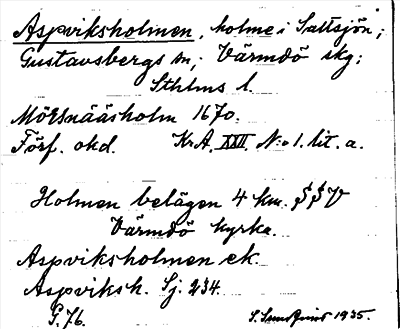 Aspviksholmen, holme i Saltsjön;
Gustavsbergs sn; Värmdö skg;
Sthlms l.
Mörtnääsholm 1670.
Förf. okd. Kr.A. XXII. N:o 1. lit. a.
Holmen belägen 4 km. SSV
Värmdö kyrka.
Aspviksholmen ek.
Aspviksh. Sj. 234.
G. 76. S. Sundquist 1935.